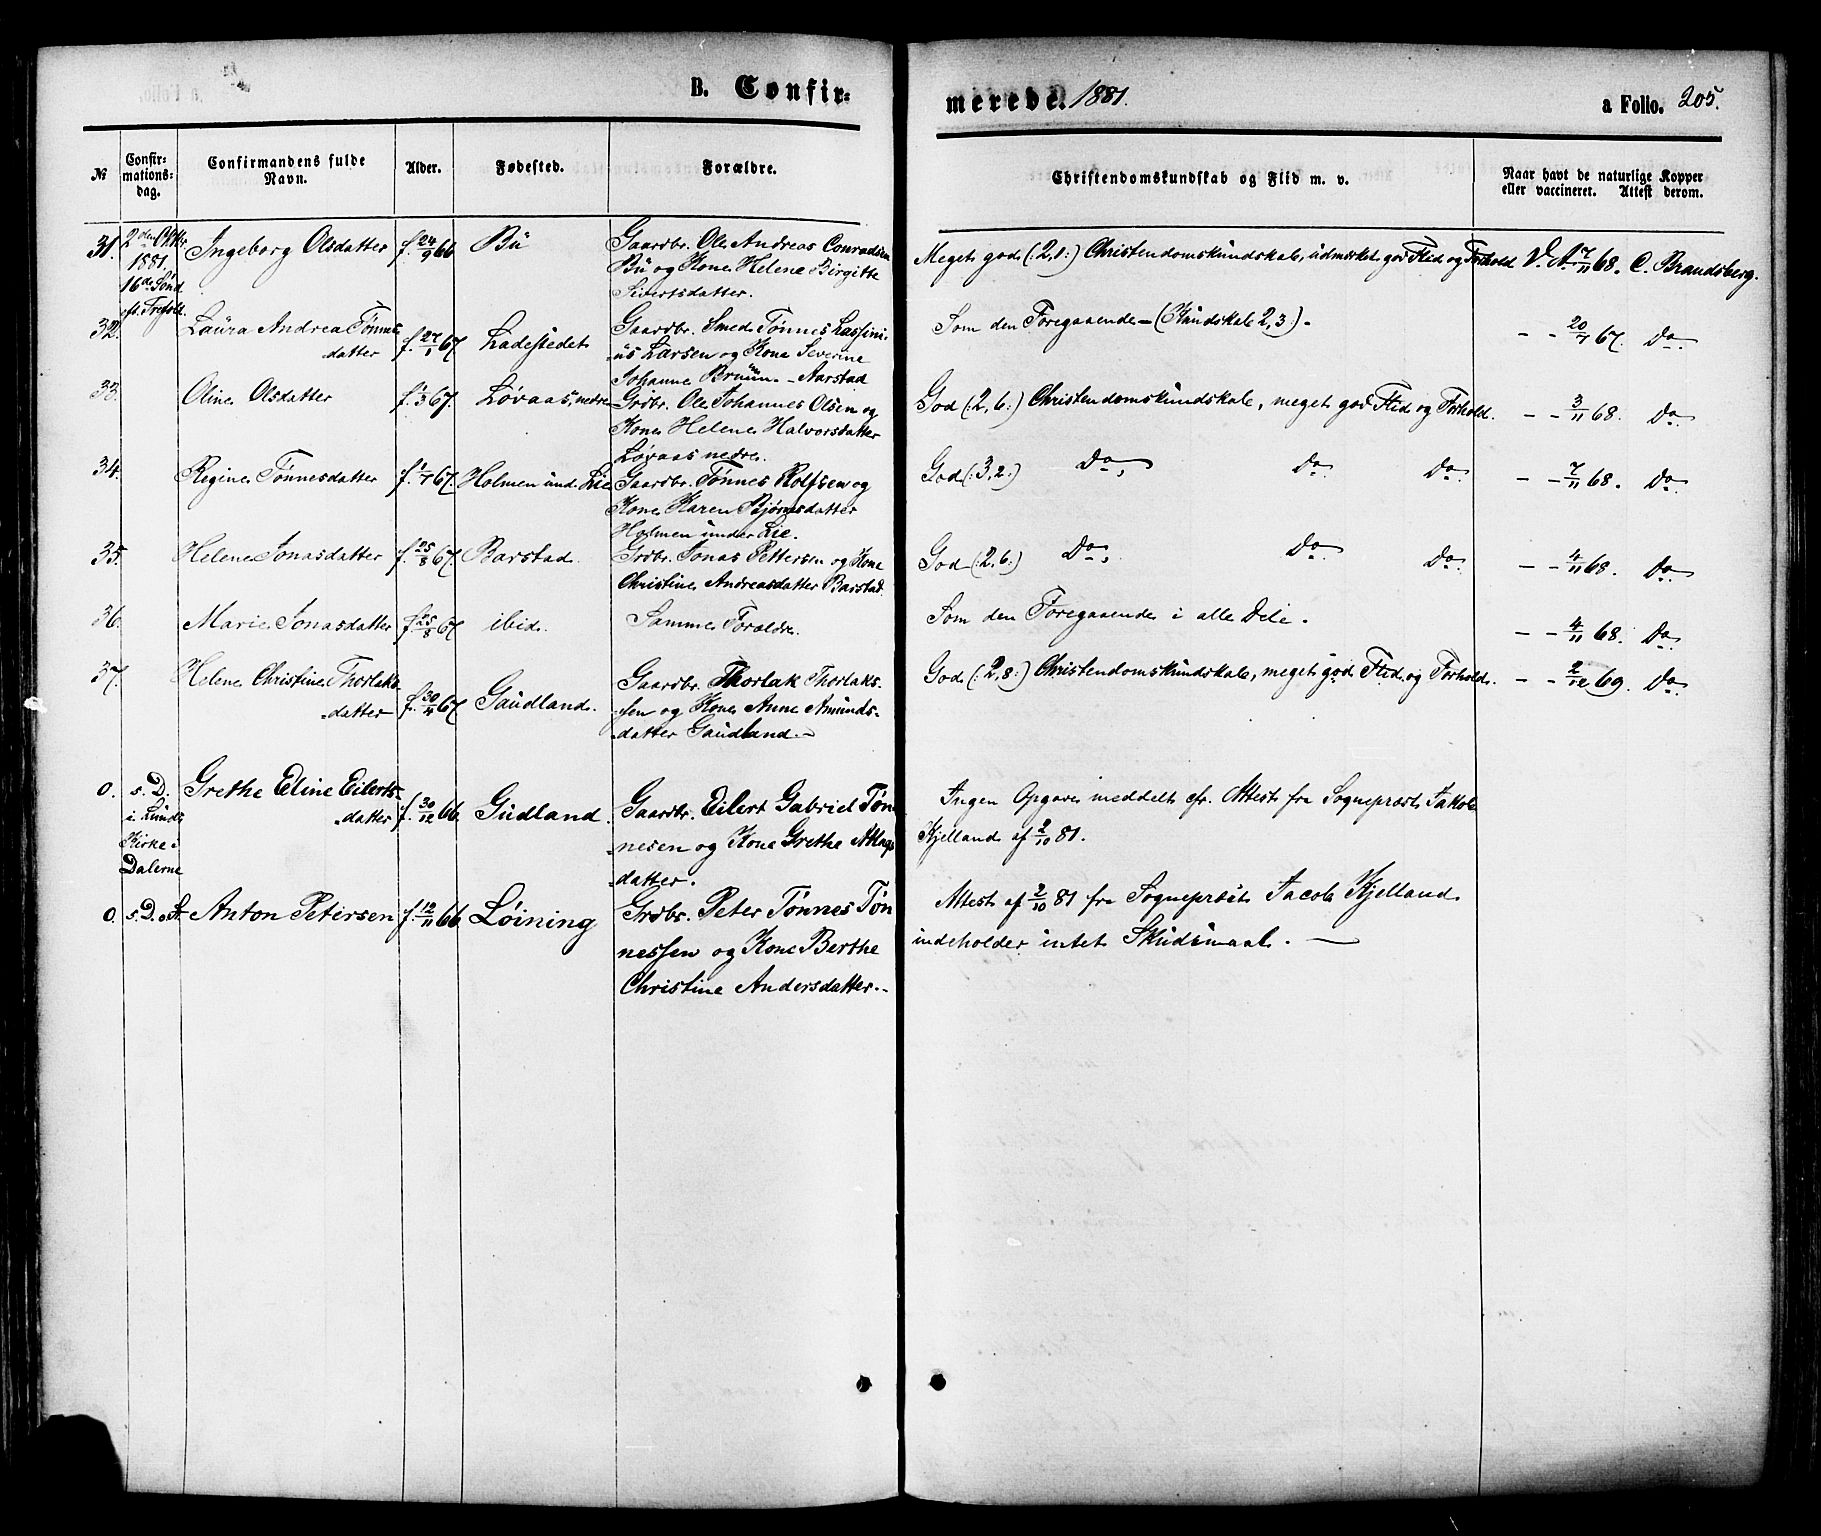 B. Confir-
merede. 1881.
a Folio. 205.
№
Confir-
mations-
dag.
Confirmandens fulde
Navn.
Alder.
Fødested.
Forældre.
Christendomskundskab og Flid m. v.
Naar havt de naturlige Kopper
eller vaccineret. Attest derom.
31. 2den Oktbr. Ingeborg Olsdatter f. 24/9 66 Bü Gaardbr. Ole Andreas Conradsen Meget god (: 2,1 :) Christendomskundskab, udmærket god Flid og Forhold V. A. 7/11 68. C. Brandsberg.
1881. Bü og Kone Helene Birgitte
16de Sønd Sivertsdatter.
eft. Trefold.
32. Laura Andrea Tønnes- f. 27/1 67. Ladestedet Gaardbr. Smed Tønnes Lassini- Som den Foregaaende - (Kundskab 2,3) - - - 20/7 67. Do.
datter us Larsen og Kone Severine
Johanne Bruun. - Aarstad
33. Oline Olsdatter f. 1/3 67. Løvaas, nedre Grdbr. Ole Johannes Olsen og God (: 2,6 :) Christendomskundskab, meget god Flid og Forhold. - - 3/11 68. Do.
Kone Helene Halvorsdatter
Løvaas nedre.
34. Regine Tønnesdatter f. 1/7 67. Holmen und. Lie Gaardbr. Tønnes Rolfsen og God (: 3,2 :) Do, Do Do. - - 7/11 68. Do.
Kone Karen Bjørnsdatter
Holmen under Lie.
35. Helene Jonasdatter f. 25/8 67. Barstad. Grdbr. Jonas Pettersen og Kone God (: 2,6 :) Do, Do Do. - - 4/11 68. Do.
Christine Andreasdatter Barstad.
36. Marie Jonasdatter f. 25/8 67 ibid. Samme Forældre. Som den Foregaaende i alle Dele. - - 4/11 68. Do.
37. Helene Christine Thorlaks- f. 30/4 67 Gaudland. Gaardbr. Thorlak Thorlaks- God (: 2,8 :) Christendomskundskab, meget god Flid og Forhold. - - 2/12 69. Do.
datter sen og Kone Anne Amunds-
datter Gaudland. -
0. s. D. Grethe Eline Eilerts- f. 30/12 66. Gudland. Gaardbr. Eilert Gabriel Tøn- Ingen Opgave meddelt cfr. Attest fra Sognepræst Jakob
i Lunds datter nesen og Kone Grethe Kjelland af 2/10 81.
Kirke i datter.
Dalerne
0. s. D. & St. Anton Petersen f. 12/11 66 Løining Grdbr. Peter Tønnes Tøn Attest af 2/10 81 fra Sognepræst Jacob Kjelland
nessen og Kone Berthe indeholder intet Skudsmaal. -
Christine Andersdatter. -